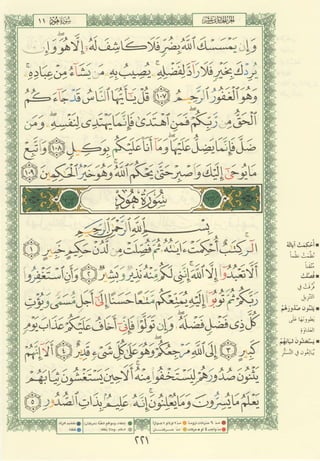 سورة هود ١١
وَإِن يَمْسَسْكَ ٱللَّهُ بِضُرٍّ فَلَا كَاشِفَ لَهُۥٓ إِلَّا هُوَ ۖ وَإِن
يُرِدْكَ بِخَيْرٍ فَلَا رَآدَّ لِفَضْلِهِۦ ۚ يُصِيبُ بِهِۦ مَن يَشَآءُ مِنْ عِبَادِهِۦ ۚ
وَهُوَ ٱلْغَفُورُ ٱلرَّحِيمُ ١٠٧ قُلْ يَٰٓأَيُّهَا ٱلنَّاسُ قَدْ جَآءَكُمُ
ٱلْحَقُّ مِن رَّبِّكُمْ ۖ فَمَنِ ٱهْتَدَىٰ فَإِنَّمَا يَهْتَدِى لِنَفْسِهِۦ ۖ وَمَن
ضَلَّ فَإِنَّمَا يَضِلُّ عَلَيْهَا ۖ وَمَآ أَنَا۠ عَلَيْكُم بِوَكِيلٍ ١٠٨ وَٱتَّبِعْ
مَا يُوحَىٰٓ إِلَيْكَ وَٱصْبِرْ حَتَّىٰ يَحْكُمَ ٱللَّهُ ۚ وَهُوَ خَيْرُ ٱلْحَٰكِمِينَ ١٠٩
سُورَةُ هُودٍ
بِسْمِ ٱللَّهِ ٱلرَّحْمَٰنِ ٱلرَّحِيمِ
الٓر ۚ كِتَٰبٌ أُحْكِمَتْ ءَايَٰتُهُۥ ثُمَّ فُصِّلَتْ مِن لَّدُنْ حَكِيمٍ خَبِيرٍ ١
أَلَّا تَعْبُدُوٓا۟ إِلَّا ٱللَّهَ ۚ إِنَّنِى لَكُم مِّنْهُ نَذِيرٌ وَبَشِيرٌ ٢ وَأَنِ ٱسْتَغْفِرُوا۟
رَبَّكُمْ ثُمَّ تُوبُوٓا۟ إِلَيْهِ يُمَتِّعْكُم مَّتَٰعًا حَسَنًا إِلَىٰٓ أَجَلٍ مُّسَمًّى وَيُؤْتِ
كُلَّ ذِى فَضْلٍ فَضْلَهُۥ ۖ وَإِن تَوَلَّوْا۟ فَإِنِّىٓ أَخَافُ عَلَيْكُمْ عَذَابَ يَوْمٍ
كَبِيرٍ ٣ إِلَى ٱللَّهِ مَرْجِعُكُمْ ۖ وَهُوَ عَلَىٰ كُلِّ شَىْءٍ قَدِيرٌ ٤ أَلَآ إِنَّهُمْ
يَثْنُونَ صُدُورَهُمْ لِيَسْتَخْفُوا۟ مِنْهُ ۚ أَلَا حِينَ يَسْتَغْشُونَ ثِيَابَهُمْ
يَعْلَمُ مَا يُسِرُّونَ وَمَا يُعْلِنُونَ ۚ إِنَّهُۥ عَلِيمٌۢ بِذَاتِ ٱلصُّدُورِ ٥
أُحْكِمَتْ آيَاتُهُ
نُظِّمَتْ نَظْمًا
مُتْقَنًا
فُصِّلَتْ
فُرِّقَتْ فِي
التَّنْزِيلِ
يَثْنُونَ صُدُورَهُمْ
يَطْوُونَهَا عَلَى
العَدَاوَةِ
يَسْتَغْشُونَ ثِيَابَهُمْ
يُبَالِغُونَ فِي التَّسَتُّرِ
٢٢١